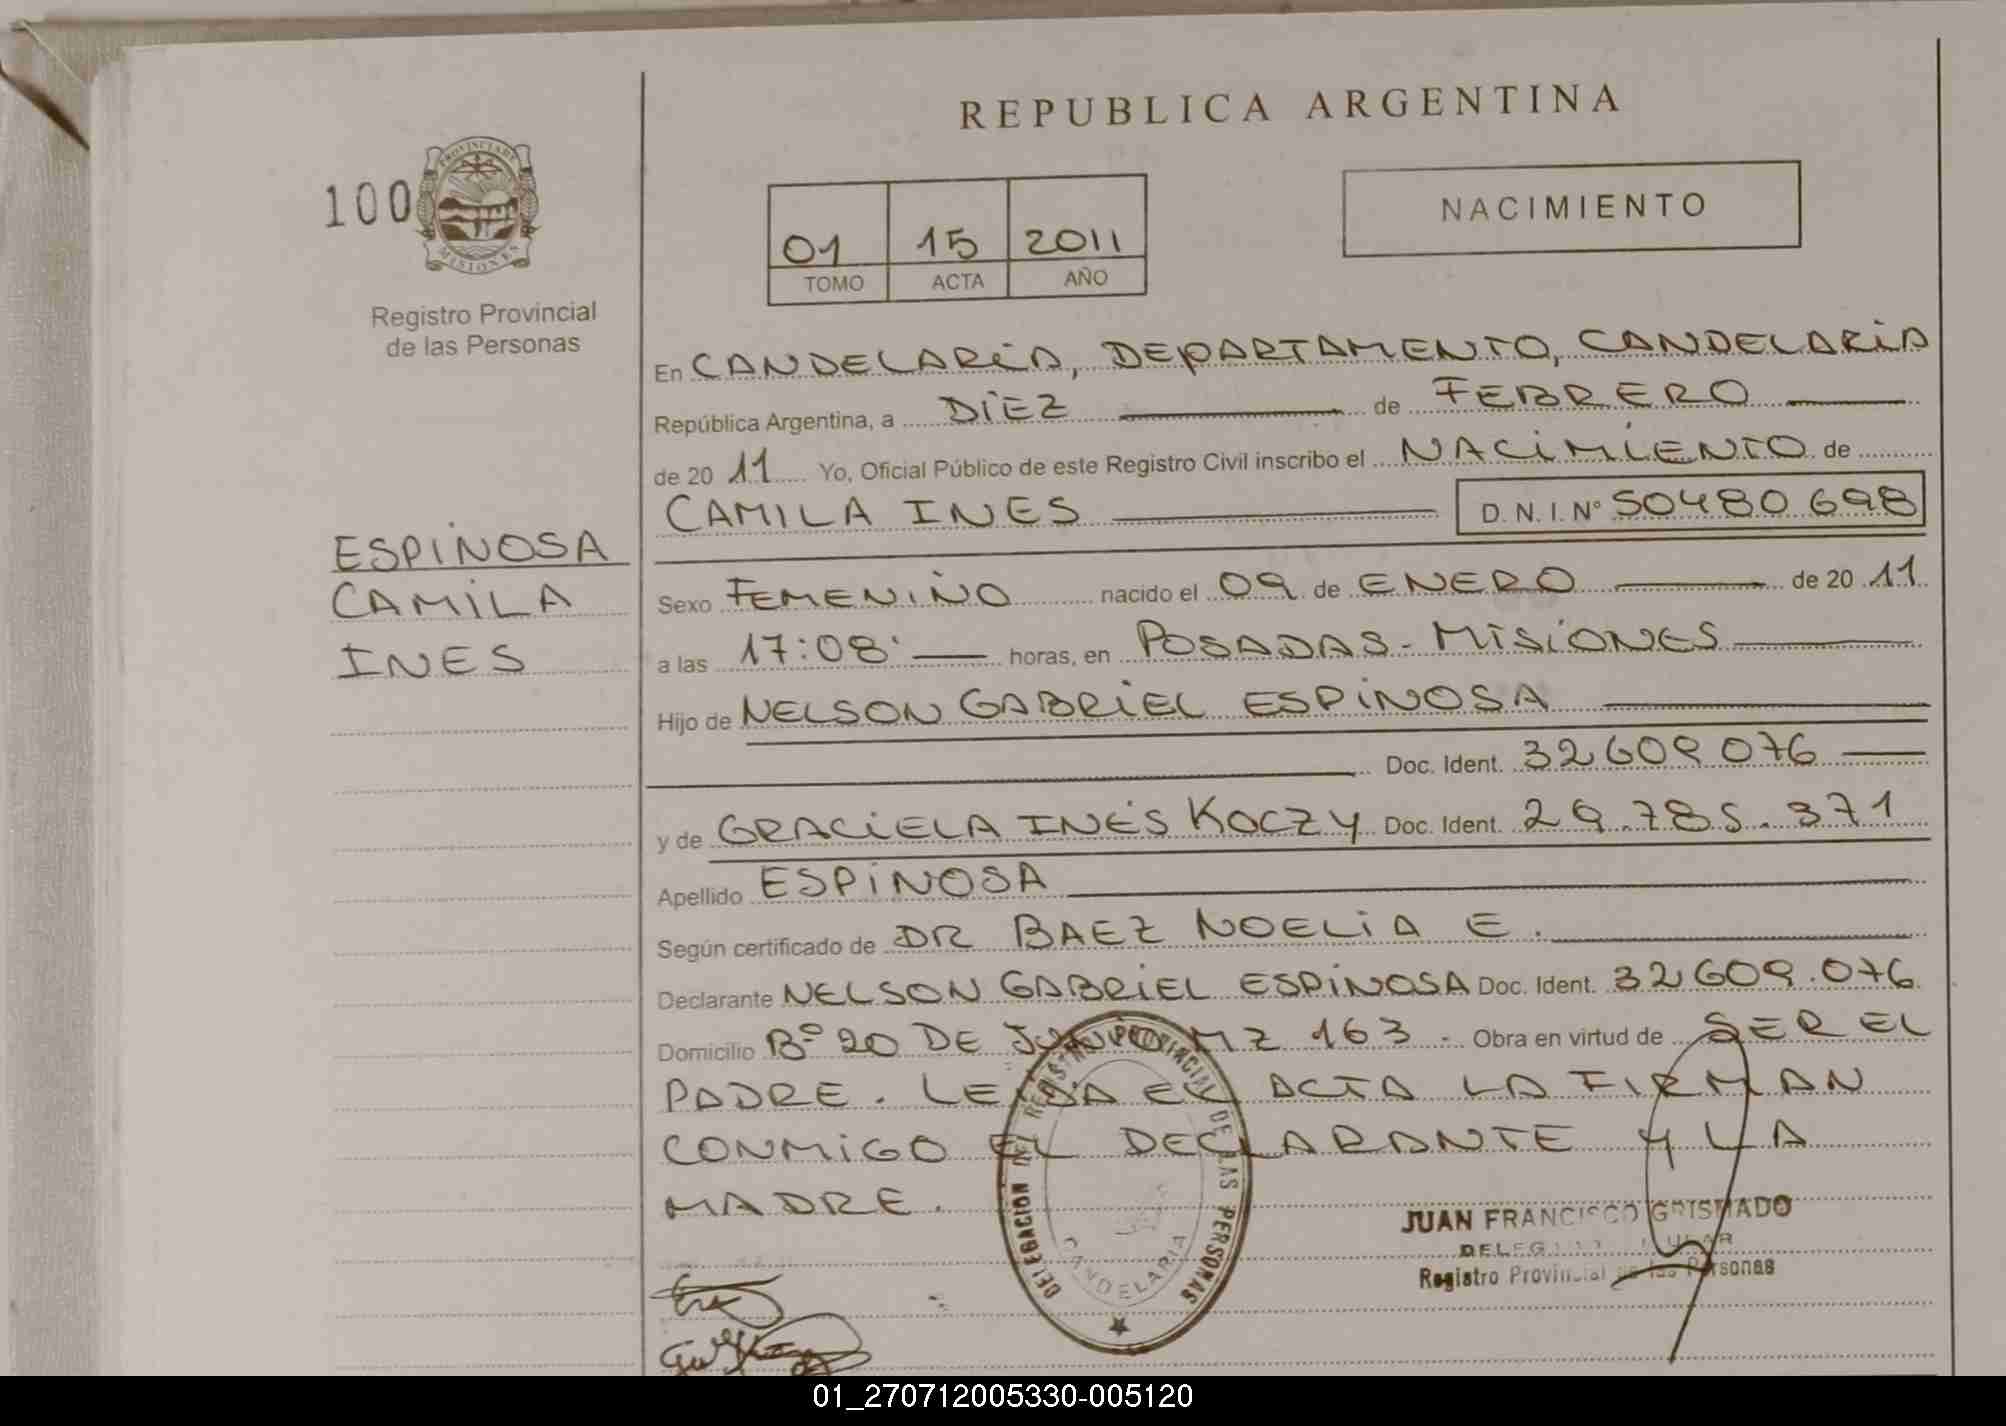 REPUBLICA ARGENTINA
100
PROVINCIA DE
MISIONES
Registro Provincial
de las Personas
01 15 2011
TOMO ACTA AÑO
NACIMIENTO
ESPINOSA
CAMILA
INES
En CANDELARIA, DEPARTAMENTO, CANDELARIA
República Argentina, a DIEZ de FEBRERO
de 20 11 Yo, Oficial Público de este Registro Civil inscribo el NACIMIENTO de
CAMILA INES D.N.I. Nº 50480698
Sexo FEMENINO nacido el 09 de ENERO de 20 11
a las 17:08 horas, en POSADAS - MISIONES
Hijo de NELSON GABRIEL ESPINOSA
Doc. Ident. 32609076
y de GRACIELA INÉS KOCZY Doc. Ident. 29.785.371
Apellido ESPINOSA
Según certificado de DR BAEZ NOELIA E.
Declarante NELSON GABRIEL ESPINOSA Doc. Ident. 32609.076
Domicilio Bº 20 DE JUNIO MZ 163. Obra en virtud de SER EL
PADRE. LEIDA EL ACTA LA FIRMAN
CONMIGO EL DECLARANTE Y LA
MADRE.
DELEGACION DEL REGISTRO PROVINCIAL DE LAS PERSONAS
CANDELARIA
JUAN FRANCISCO GRISMADO
Registro Provincial de las Personas
01_270712005330-005120